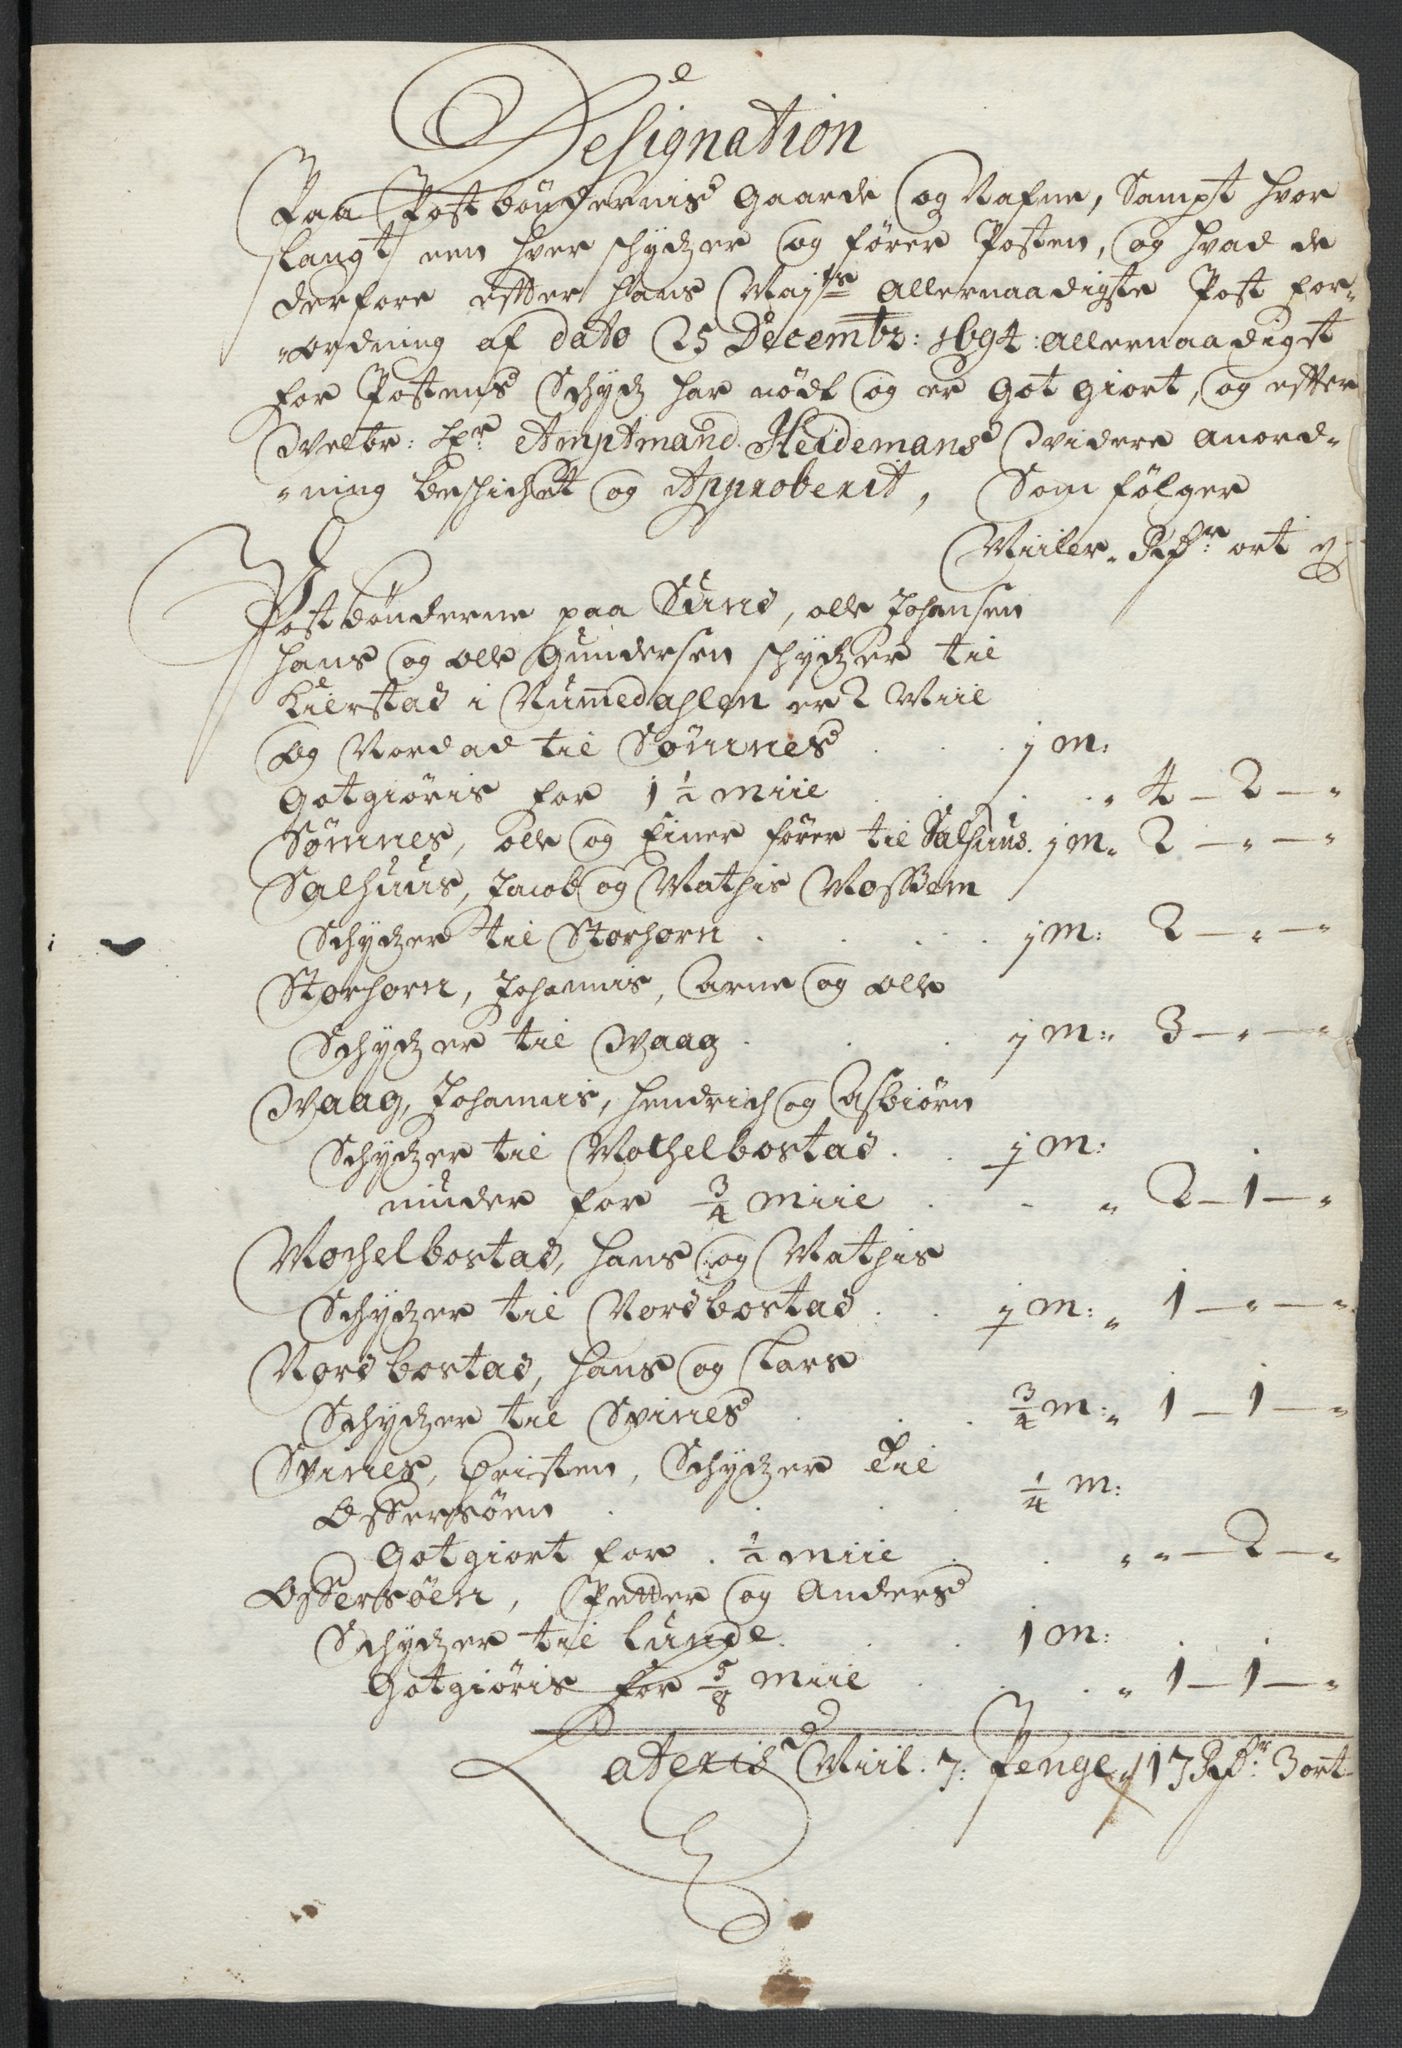 Designation
Paa Postbøndernis Gaarde og Nafne, Sampt hvor
langt een hver schydzer og fører Posten, og hvad de
derfore efter Hans Majts allernaadigste Post for-
-ordning af dato 25 Decembr: 1694 allernaadigst
for Postens Schydz har nødt og er Got giort, og efter
Velbr: Hr Amptmand Heidemans videre anord-
-ning beschichet og Approberit, Som følger
Miiler. Rdr ort s
Postbønderne paa Sund, olle Johansen
Hans og olle Gundersen schydzer til
Kierstad i Numedahlen er 2 Miil
og Nord ad til Sømnes . . . 1 m:
Gotgiøris for 1 ½ miil . . . „ 4 – 2 – „
Sømnes, olle og Einer fører til Salhuus. 1 m„ 2 – „ – „
Salhuus, Jacob og Mathis Mossem
Schydzer til Storhorn . . . . 1 m: 2 – „ – „
Storhorn, Johannis, Arne og olle
Schydzer til Vaag . . . 1 m: 3 – „ – „
Vaag, Johannis, Hendrich og Asbiørn
Schydzer til Mochelbostad . . 1 m:
niuder for ¾ miil . . „ 2 – 1 – „
Mochelbostad, Hans og Mathis
Schydzer til Nordbostad . . ½ m: „ 1 – „ – „
Nordbostad, Hans og Lars
Schydzer til Svines . . . ¾ m: „ 1 – 1 – „
Svines, Christen, Schydzer til
Offersøen . . . . ¼ m:
Gotgiort for . ½ miil . . „ „ – 2 – „
Offersøen, Petter og Anders
Schydzer til Lunde . . . 1 m:
Gotgiøris for 5/8 miil . . . „ 1 – 1 – „
Lateris Miil. 7: Penge 17 Rdr 3 ort